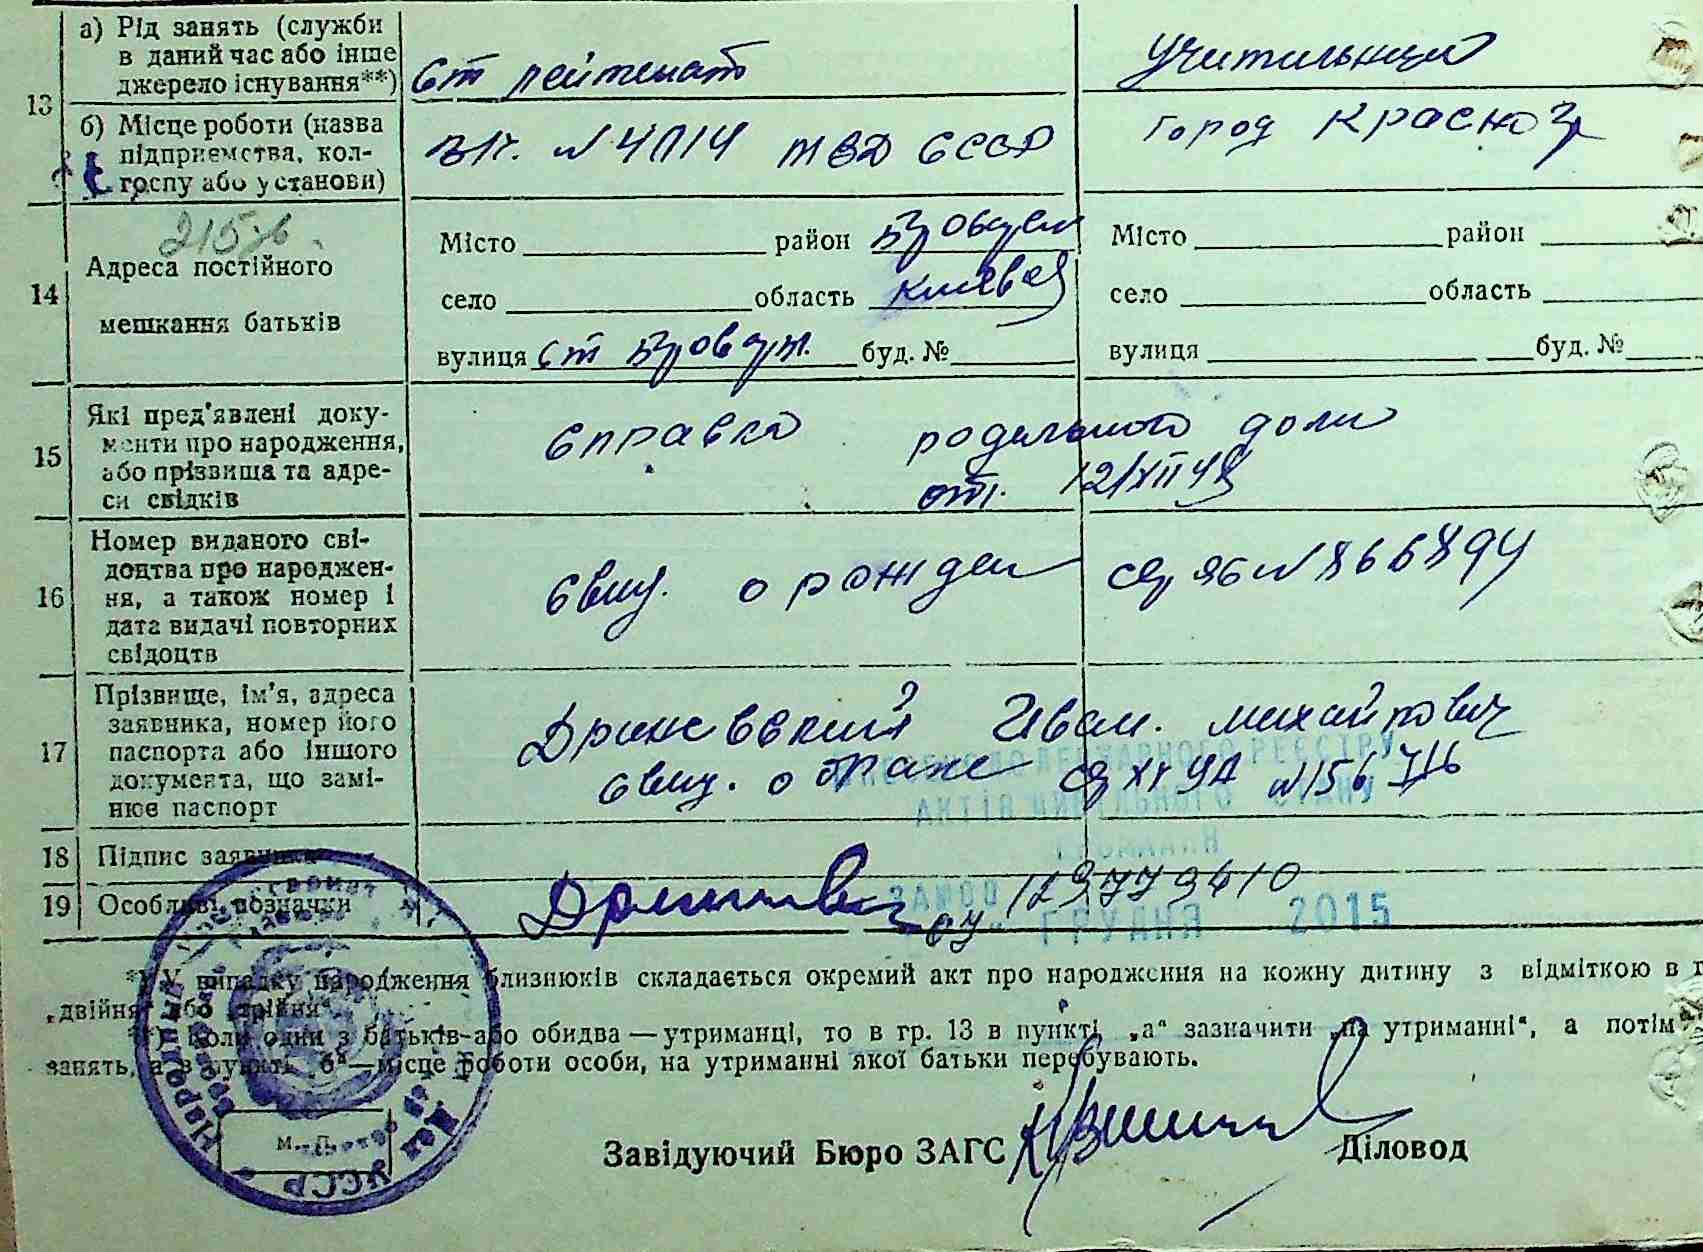 13
а) Рід занять (служби
в даний час або інше
джерело існування**)
ст лейтенант
учительница
б) Місце роботи (назва
підприємства, кол-
госпу або установи)
в/ч. N 4114 МВД СССР
город
14
215-в
Адреса постійного
мешкання батьків
Місто район
село область
вулиця ст буд. №
Місто район
село область
вулиця буд. №
15
Які пред'явлені доку-
менти про народження,
або прізвища та адре-
си свідків
справка родильного дома
от. 12/XII 48
16
Номер виданого сві-
доцтва про народжен-
ня, а також номер і
дата видачі повторних
свідоцтв
свид. о рожден
17
Прізвище, ім'я, адреса
заявника, номер його
паспорта або іншого
документа, що замі-
нює паспорт
Иван. Михайлович
свид. о браке N 156716
ДЕРЖАВНОГО РЕЄСТРУ
АКТІВ ЦИВІЛЬНОГО СТАНУ
ГРОМАДЯН
18
Підпис заявника
19
Особливі позначки
ГРУДНЯ 2015
*) У випадку народження близнюків складається окремий акт про народження на кожну дитину з відміткою в
„двійня" або „трійня".
**) Коли один з батьків або обидва — утриманці, то в гр. 13 в пункті „а" зазначити „на утриманні", а потім
занять, а в пункті „б" — місце роботи особи, на утриманні якої батьки перебувають.
м. п.
УССР
Завідуючий Бюро ЗАГС Діловод